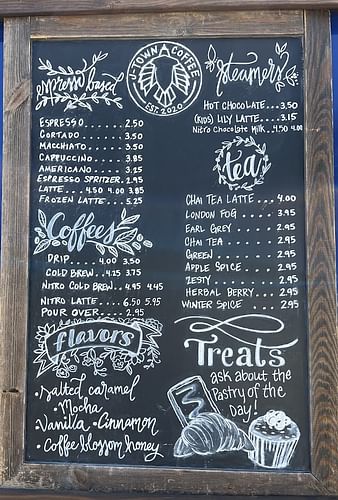 J-TOWN COFFEE
EST. 2020
espresso based
ESPRESSO...... 2.50
CORTADO....... 3.50
MACCHIATO..... 3.50
CAPPUCCINO.... 3.85
AMERICANO..... 3.15
ESPRESSO SPRITZER. 2.95
LATTE... 4.50 4.00 3.85
FROZEN LATTE.... 5.25
Coffees
DRIP..... 4.00 3.50
COLD BREW.. 4.25 3.75
NITRO COLD BREW.. 4.95 4.45
NITRO LATTE.... 6.50 5.95
POUR OVER..... 2.95
flavors
• Salted caramel
• Mocha
• Vanilla • Cinnamon
• Coffee blossom honey
Steamers
HOT CHOCOLATE... 3.50
(KIDS) LILY LATTE.... 3.15
Nitro Chocolate Milk.. 4.50 4.00
tea
CHAI TEA LATTE ... 4.00
LONDON FOG .... 3.95
EARL GREY ..... 2.95
CHAI TEA ...... 2.95
GREEN ........ 2.95
APPLE SPICE .... 2.95
ZESTY ........ 2.95
HERBAL BERRY.... 2.95
WINTER SPICE .... 2.95
Treats
ask about the
Pastry of the
Day!